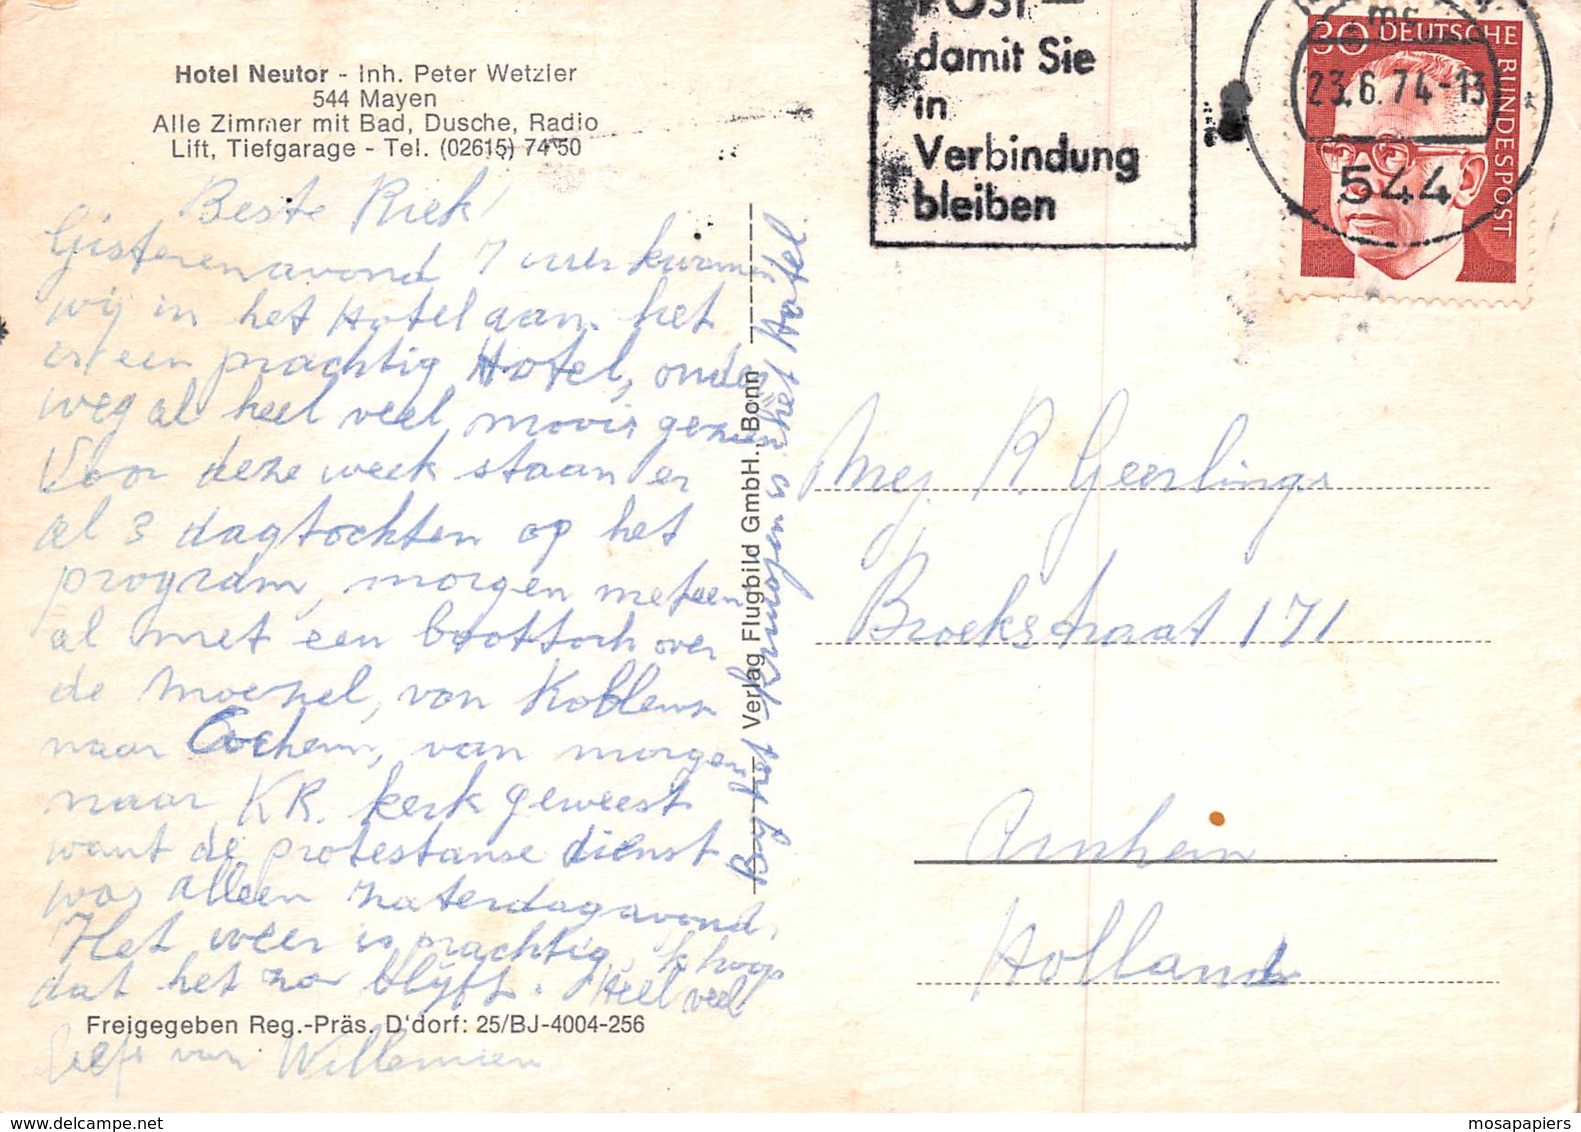 Hotel Neutor - Inh. Peter Wetzler
544 Mayen
Alle Zimmer mit Bad, Dusche, Radio
Lift, Tiefgarage - Tel. (02615) 74 50
Beste Riek
Gisterenavond 7 uur kwamen
wij in het Hotel aan. het
is een prachtig Hotel, onder
weg al heel veel moois gezien
Voor deze week staan er
al 3 dagtochten op het
program, morgen meteen
al met een boottoch over
de Moezel, van Koblenz
naar Cochem, van morgen
naar KR. kerk geweest
want de protestanse dienst
was alleen zaterdagavond.
Het weer is prachtig, 'k hoop
dat het zo blijft. Heel veel
liefs van Willemien
Freigegeben Reg.-Präs. D'dorf: 25/BJ-4004-256
Verlag Flugbild GmbH., Bonn
Bij het kruisje is het Hotel
POST—
damit Sie
in
Verbindung
bleiben
30 DEUTSCHE BUNDESPOST
23.6.74-13
544
Mej. R. Geerlings
Broekstraat 171
Arnhem
Holland
mosapapiers